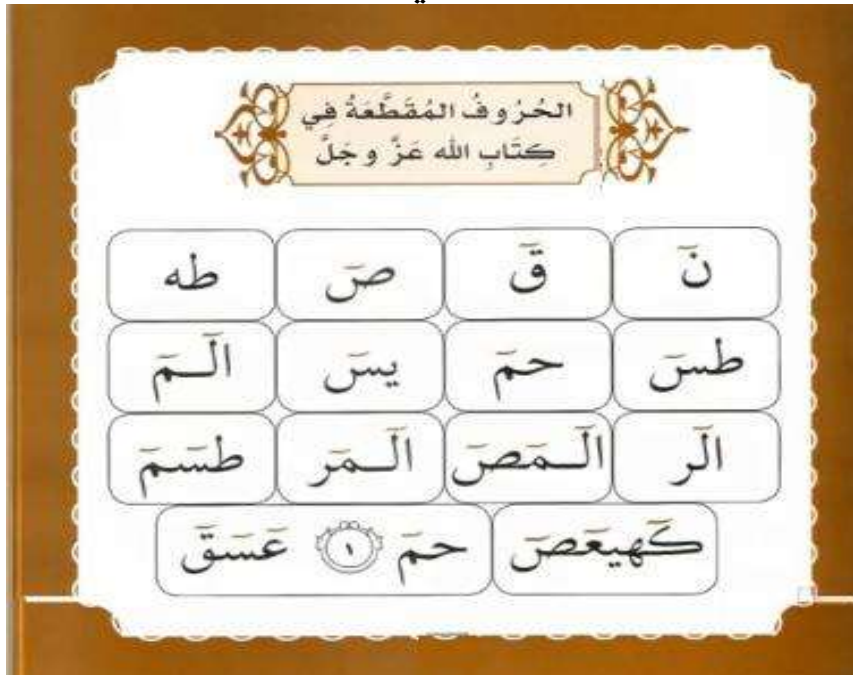 الحُرُوفُ المُقَطَّعَةُ فِي
كِتَابِ الله عَزَّ وجَلَّ
نٓ قٓ صٓ طه
طسٓ حمٓ يسٓ الٓـمٓ
الٓر الٓـمٓصٓ الٓـمٓر طسٓمٓ
كٓهيعٓصٓ حمٓ ١ عٓسٓقٓ